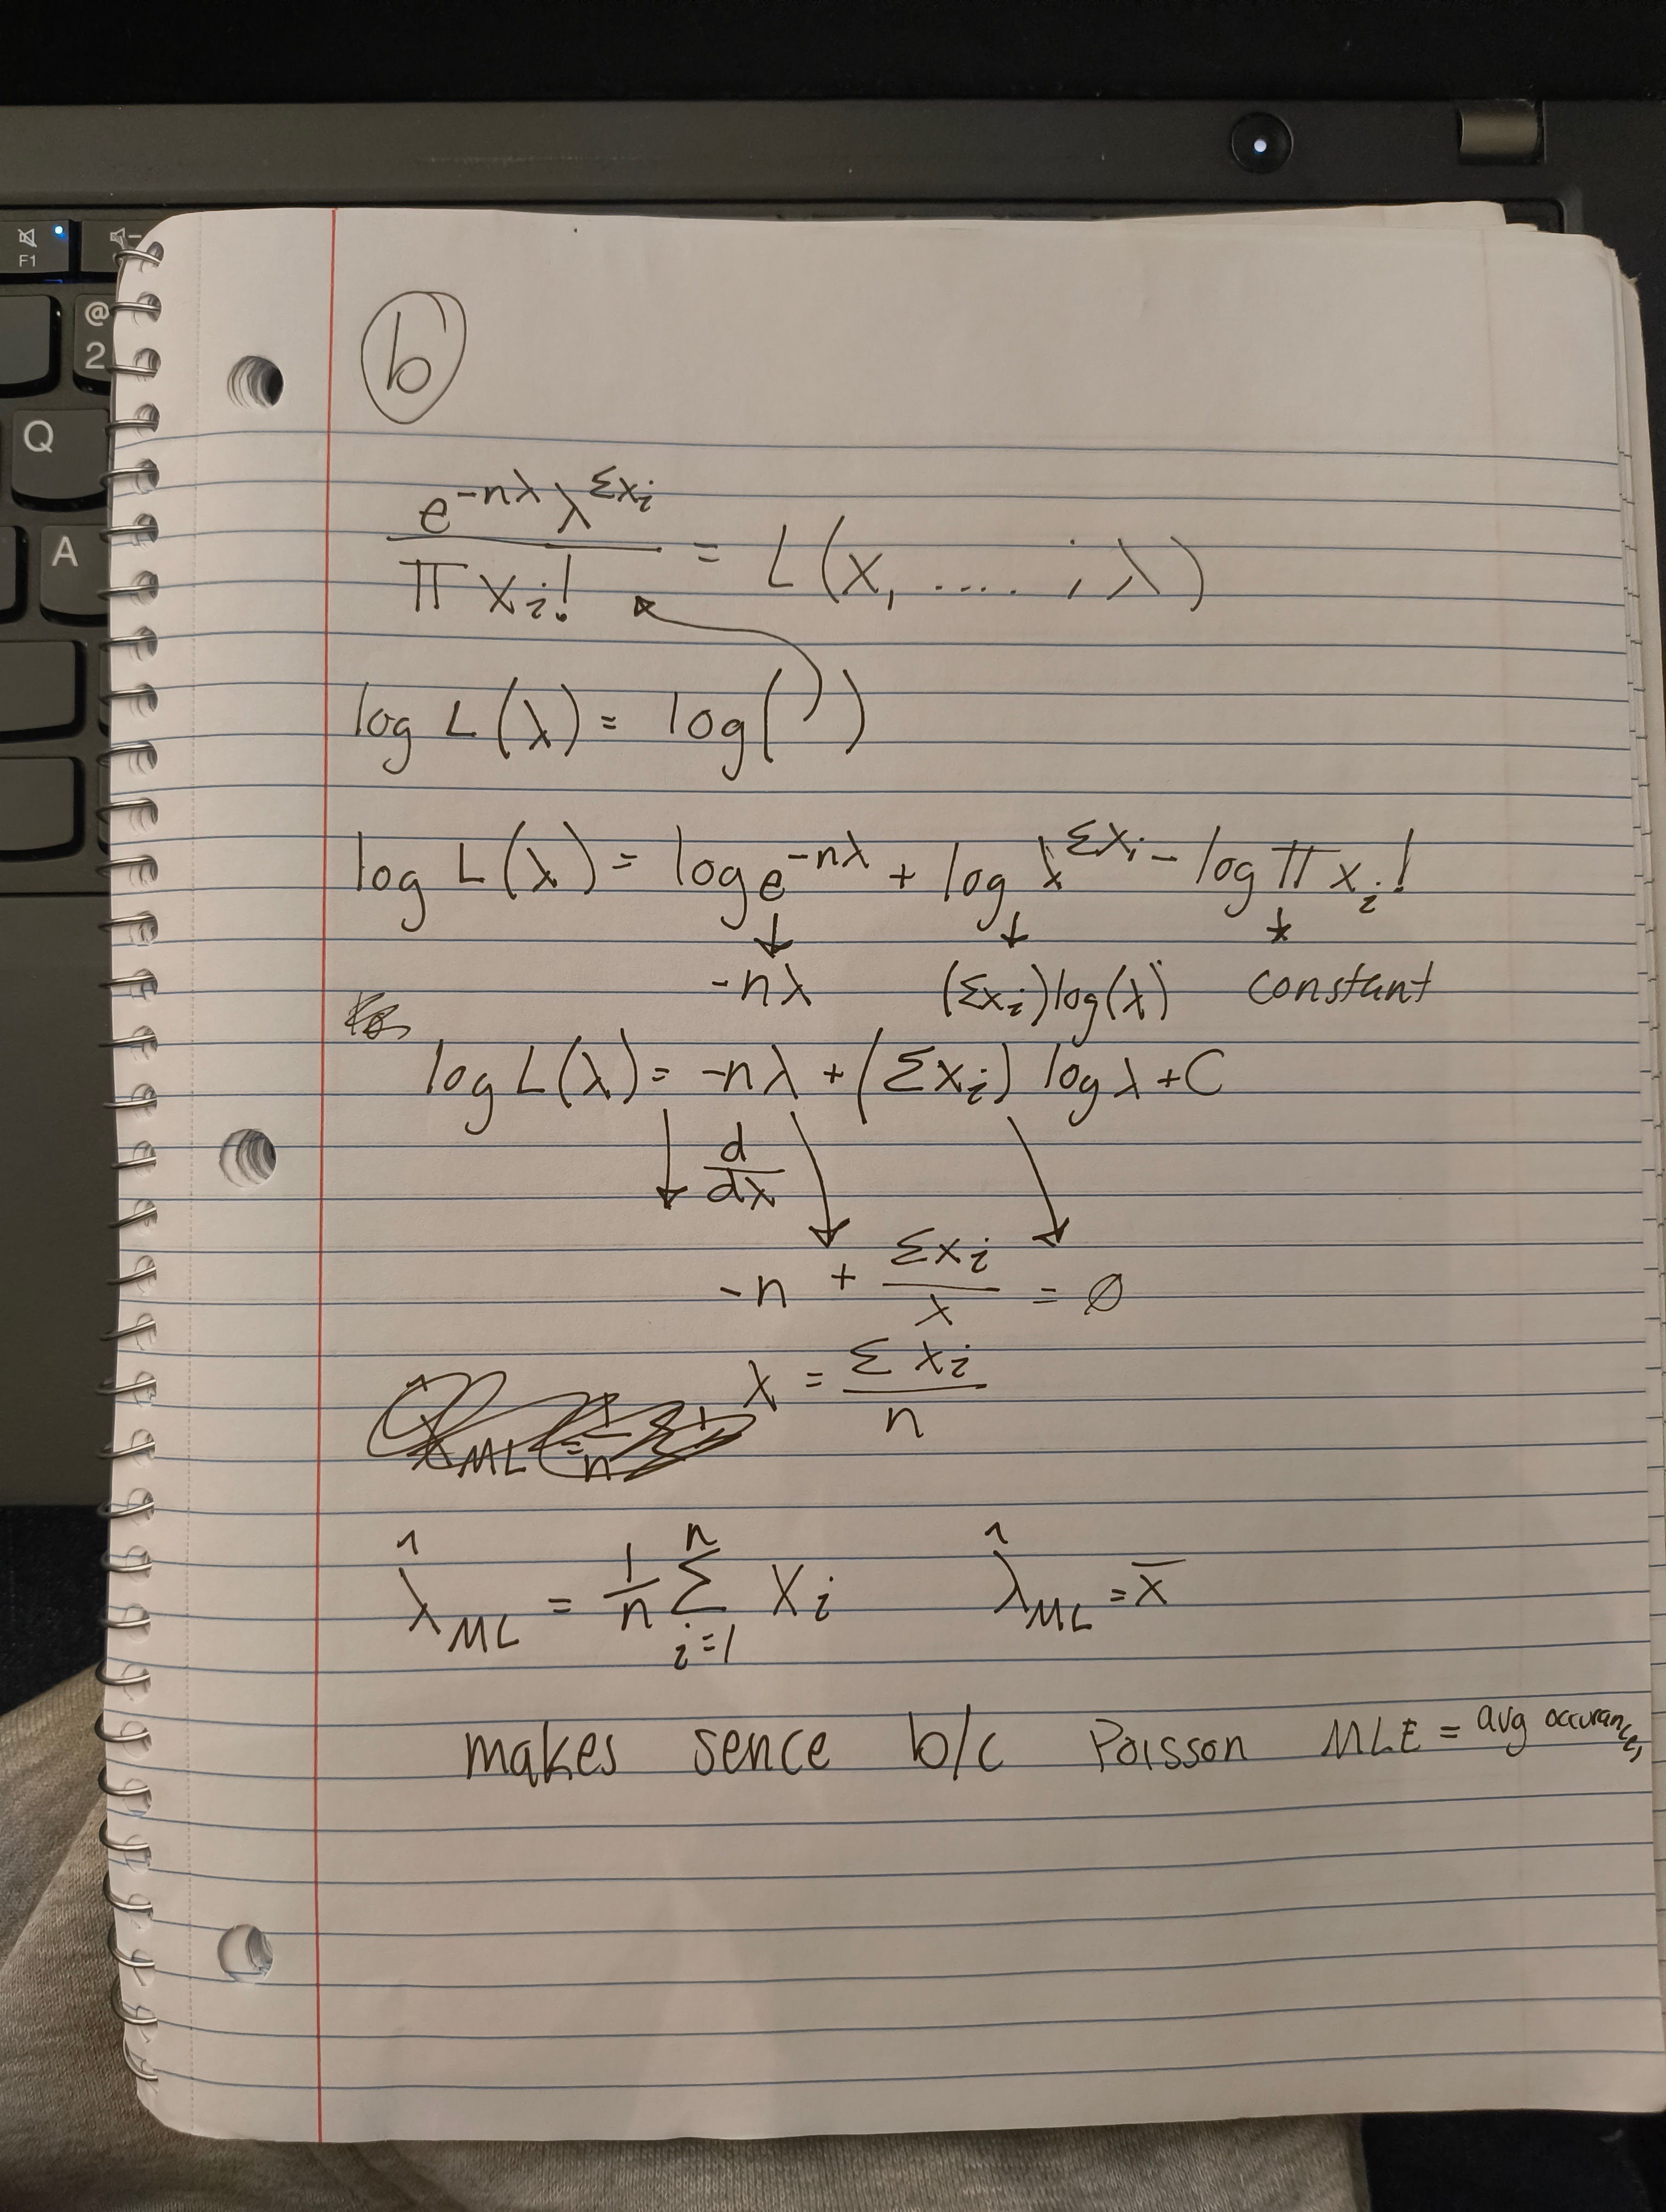 F1
@
2
Q
A
b
e^{-nλ} λ^{Σx_i} / Π x_i! = L(x, .... ; λ)
log L(λ) = log( )
log L(λ) = log e^{-nλ} + log λ^{Σx_i} - log Π x_i!
↓ ↓ ↓
-nλ (Σx_i)log(λ) constant
log L(λ) = -nλ + (Σx_i) log λ + C
↓ d/dλ
-n + Σx_i / λ = 0
λ = Σx_i / n
λ̂_ML = 1/n Σ_{i=1}^{n} X_i λ̂_ML = x̄
makes sence b/c Poisson MLE = avg occurances